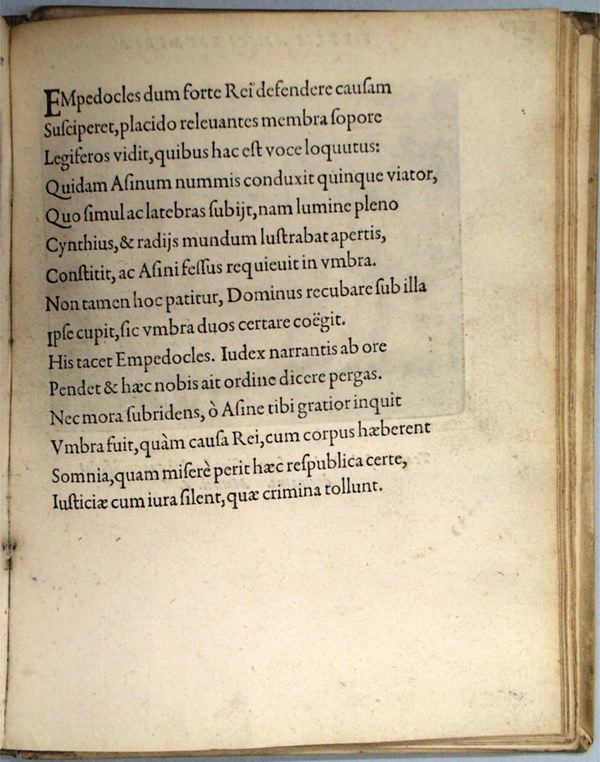 EMpedocles dum forte Rei defendere cauſam
Suſciperet, placido releuantes membra ſopore
Legiferos vidit, quibus hac eſt voce loquutus:
Quidam Aſinum nummis conduxit quinque viator,
Quo ſimul ac latebras ſubijt, nam lumine pleno
Cynthius, & radijs mundum luſtrabat apertis,
Conſtitit, ac Aſini feſſus requieuit in vmbra.
Non tamen hoc patitur, Dominus recubare ſub illa
Ipſe cupit, ſic vmbra duos certare coëgit.
His tacet Empedocles. Iudex narrantis ab ore
Pendet & hæc nobis ait ordine dicere pergas.
Nec mora ſubridens, ò Aſine tibi gratior inquit
Vmbra fuit, quàm cauſa Rei, cum corpus hæberent
Somnia, quam miſerè perit hæc reſpublica certe,
Iuſticiæ cum iura ſilent, quæ crimina tollunt.